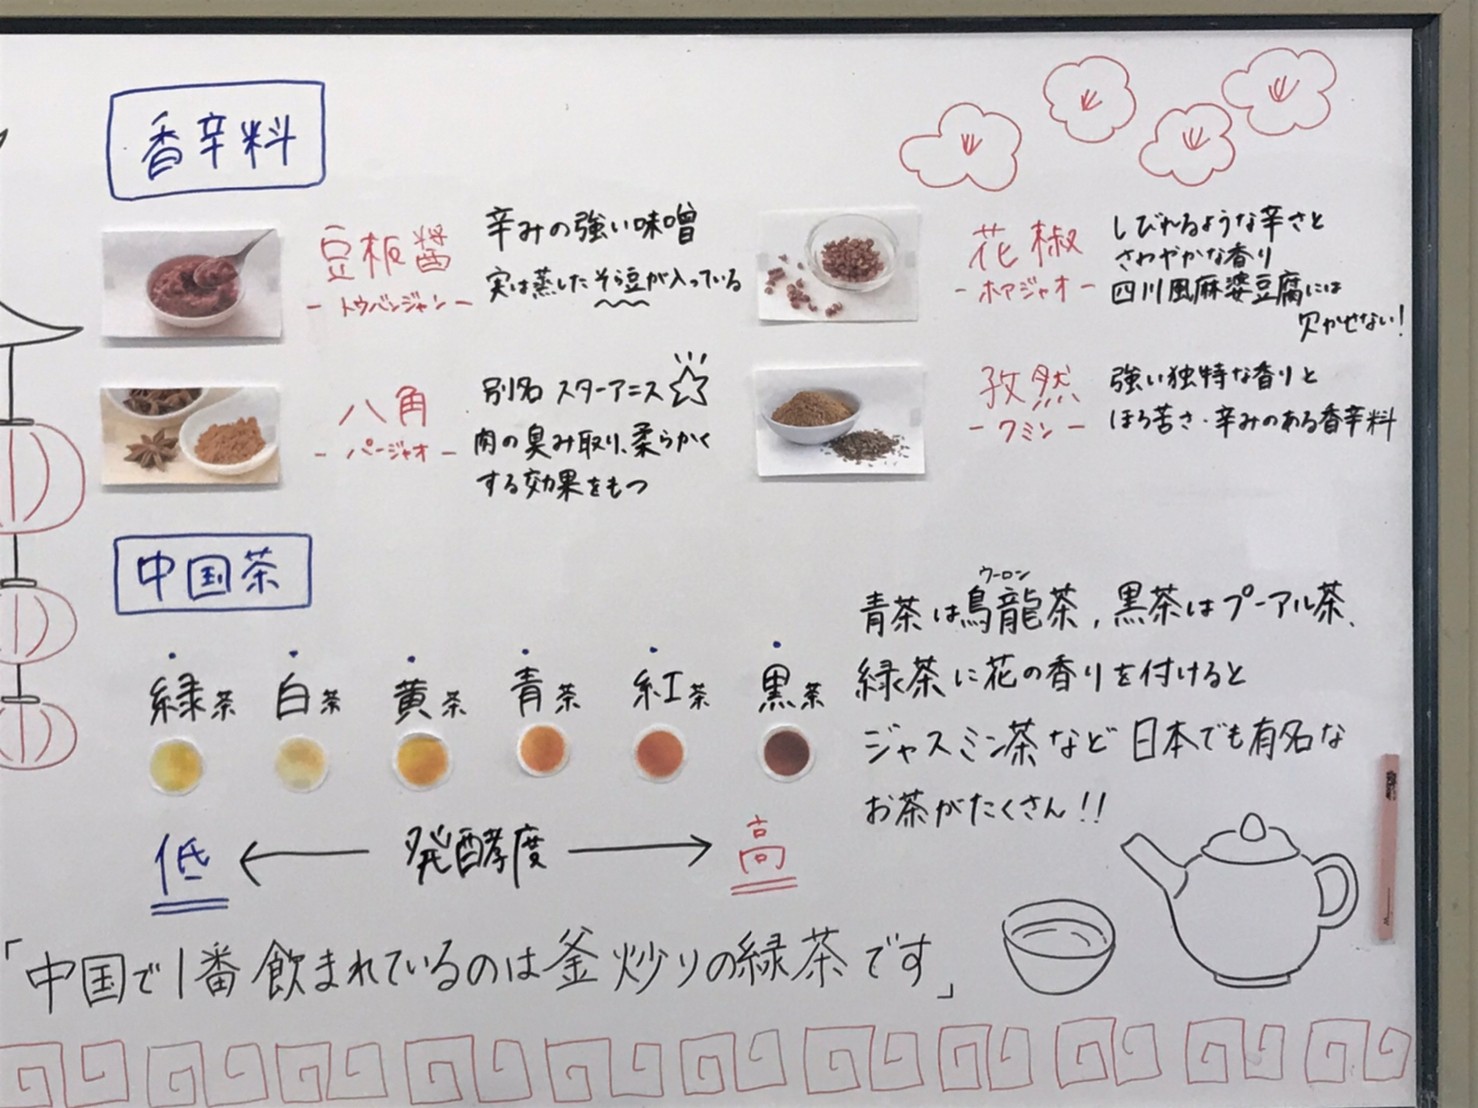 香辛料
豆板醤
- トウバンジャン -
辛みの強い味噌
実は蒸したそら豆が入っている
花椒
- ホアジャオ -
しびれるような辛さと
さわやかな香り
四川風麻婆豆腐には
欠かせない!
八角
- パージャオ -
別名 スターアニス☆
肉の臭み取り、柔らかく
する効果をもつ
孜然
- クミン -
強い独特な香りと
ほろ苦さ・辛みのある香辛料
中国茶
緑茶 白茶 黄茶 青茶 紅茶 黒茶
低 ← 発酵度 → 高
ウーロン
青茶は烏龍茶,黒茶はプーアル茶、
緑茶に花の香りを付けると
ジャスミン茶など日本でも有名な
お茶がたくさん!!
「中国で1番飲まれているのは釜炒りの緑茶です」